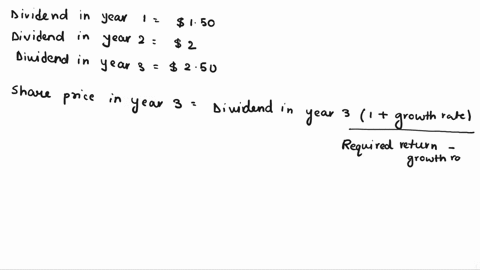 Dividend in year 1 = $1.50
Dividend in year 2 = $2
Dividend in year 3 = $2.50
Share price in year 3 = Dividend in year 3 (1 + growth rate)
Required return -
growth ra